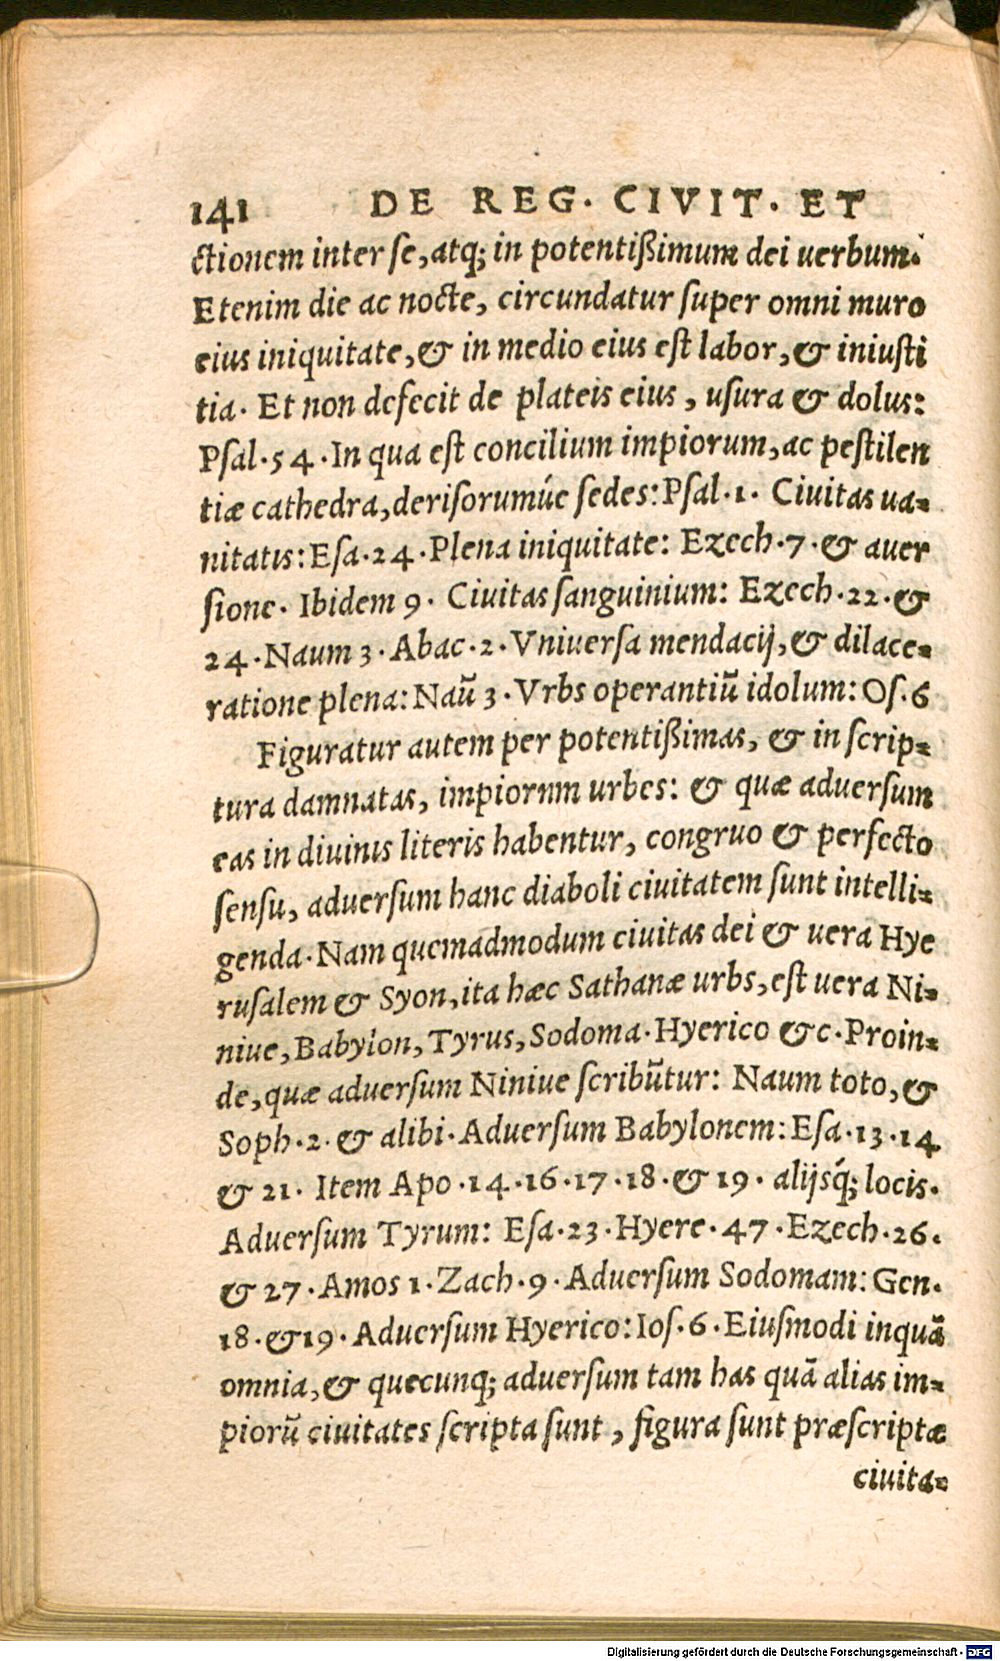 141 DE REG. CIVIT. ET
ctionem inter se, atq; in potentißimum dei uerbum.
Etenim die ac nocte, circundatur super omni muro
eius iniquitate, & in medio eius est labor, & iniusti
tia. Et non defecit de plateis eius, usura & dolus:
Psal. 54. In qua est concilium impiorum, ac pestilen
tiæ cathedra, derisorumúe sedes: Psal. 1. Ciuitas ua=
nitatis: Esa. 24. Plena iniquitate: Ezech. 7. & auer
sione. Ibidem 9. Ciuitas sanguinium: Ezech. 22. &
24. Naum 3. Abac. 2. Vniuersa mendacij, & dilace=
ratione plena: Naũ 3. Vrbs operantiũ idolum: Os. 6
Figuratur autem per potentißimas, & in scrip=
tura damnatas, impiornm urbes: & quæ aduersum
eas in diuinis literis habentur, congruo & perfecto
sensu, aduersum hanc diaboli ciuitatem sunt intelli=
genda. Nam quemadmodum ciuitas dei & uera Hye
rusalem & Syon, ita hæc Sathanæ urbs, est uera Ni=
niue, Babylon, Tyrus, Sodoma. Hyerico &c. Proin=
de, quæ aduersum Niniue scribũtur: Naum toto, &
Soph. 2. & alibi. Aduersum Babylonem: Esa. 13. 14
& 21. Item Apo. 14. 16. 17. 18. & 19. alijsq́; locis.
Aduersum Tyrum: Esa. 23. Hyere. 47. Ezech. 26.
& 27. Amos 1. Zach. 9. Aduersum Sodomam: Gen.
18. & 19. Aduersum Hyerico: Ios. 6. Eiusmodi inquã
omnia, & quecunq; aduersum tam has quã alias im=
piorũ ciuitates scripta sunt, figura sunt præscriptæ
ciuita=
Digitalisierung gefördert durch die Deutsche Forschungsgemeinschaft - DFG